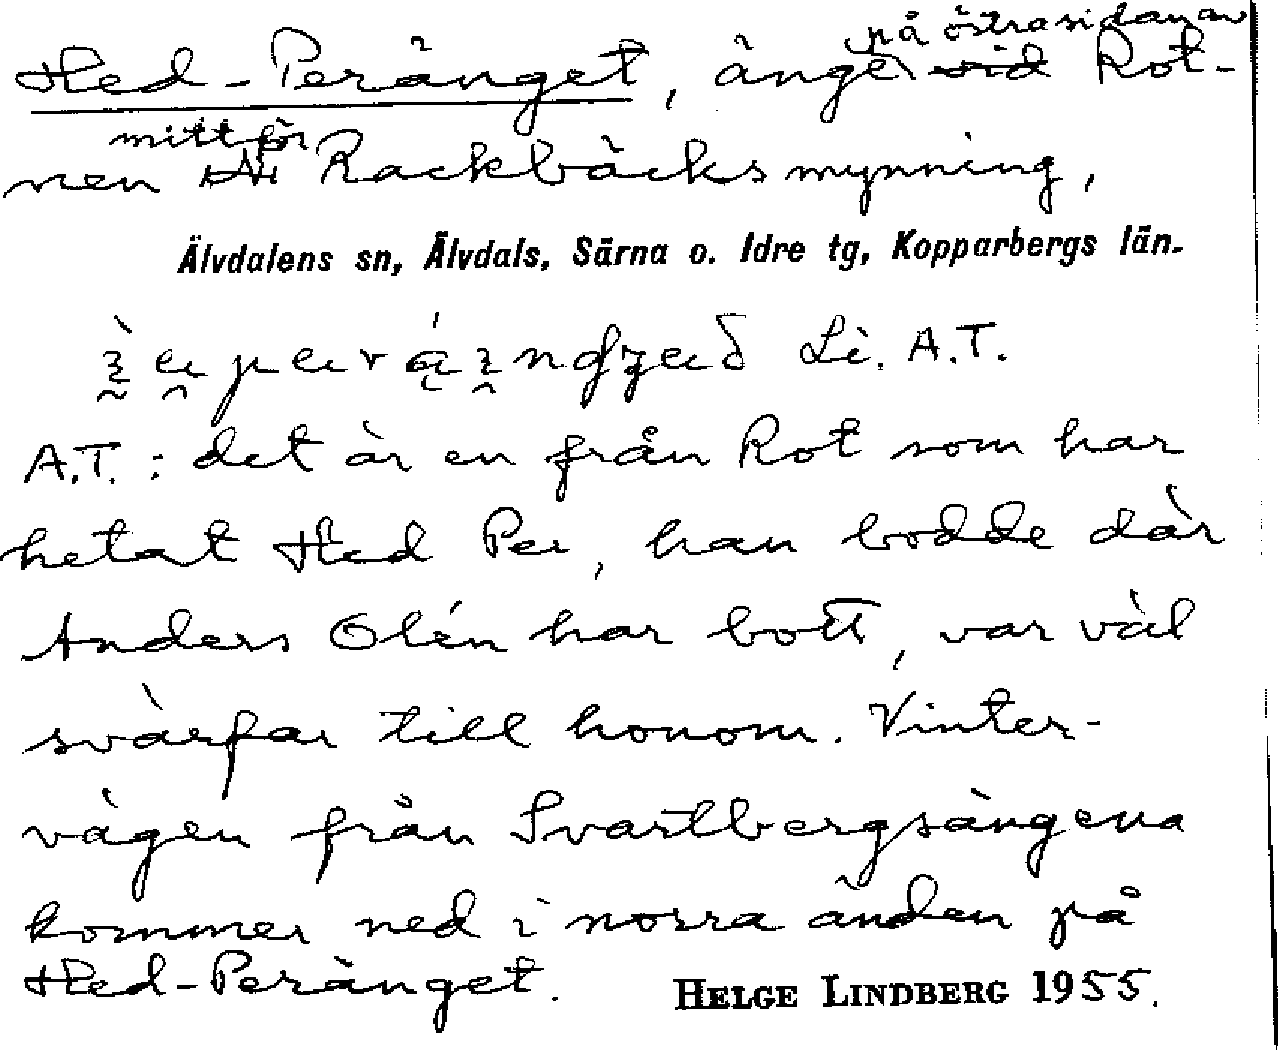 på östra sidan av
Hed-Peränget, änge vid Rot-
mitt för
nen Rackbäcks mynning,
Älvdalens sn, Älvdals, Särna o. Idre tg, Kopparbergs län.
Li. A.T.
A.T.: det är en från Rot som har
hetat Hed Per, han bodde där
Anders Olén har bott, var väl
svärfar till honom. Vinter-
vägen från Svartbergsängena
kommer ned i norra änden på
Hed-Peränget. HELGE LINDBERG 1955.